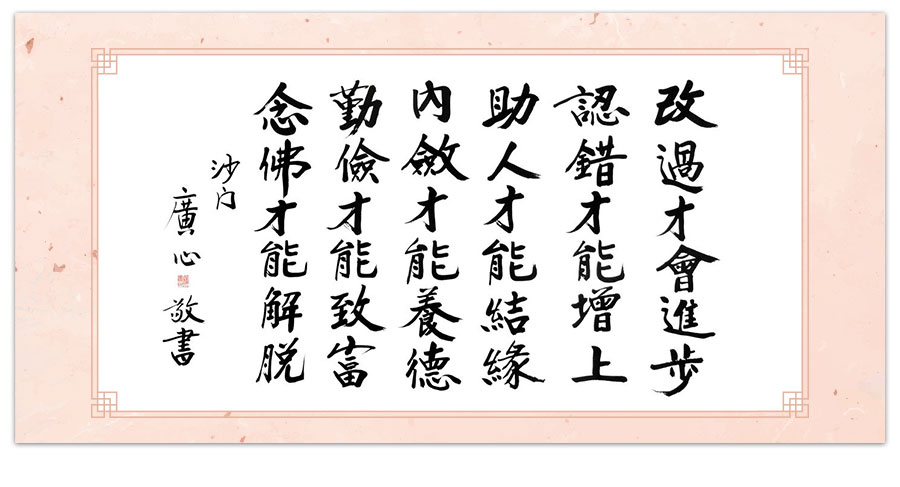 改過才會進步
認錯才能增上
助人才能結緣
內斂才能養德
勤儉才能致富
念佛才能解脫
沙门
廣心
敬書